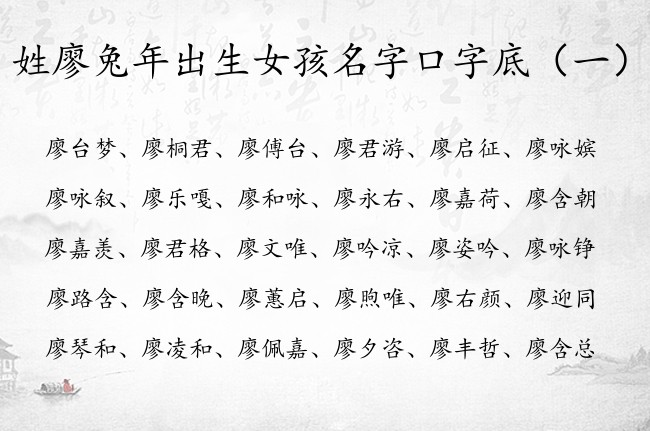 姓廖兔年出生女孩名字口字底（一）
廖台梦、廖桐君、廖傅台、廖君游、廖启征、廖咏嫔
廖咏叙、廖乐嘎、廖和咏、廖永右、廖嘉荷、廖含朝
廖嘉羡、廖君格、廖文唯、廖吟凉、廖姿吟、廖咏铮
廖路含、廖含晚、廖蕙启、廖煦唯、廖右颜、廖迎同
廖琴和、廖凌和、廖佩嘉、廖夕咨、廖丰哲、廖含总